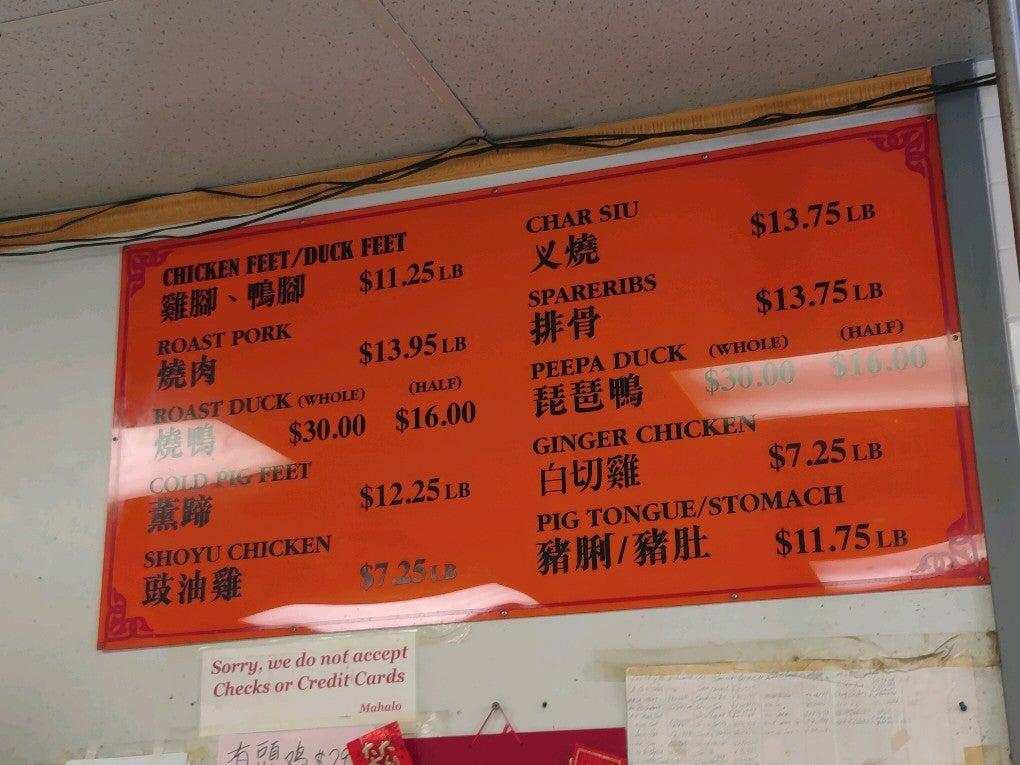 CHICKEN FEET/DUCK FEET
雞腳、鴨腳 $11.25 LB
ROAST PORK
燒肉 $13.95 LB
ROAST DUCK (WHOLE) (HALF)
燒鴨 $30.00 $16.00
COLD PIG FEET
薰蹄 $12.25 LB
SHOYU CHICKEN
豉油雞 $7.25 LB
CHAR SIU
乂燒 $13.75 LB
SPARERIBS
排骨 $13.75 LB
PEEPA DUCK (WHOLE) (HALF)
琵琶鴨 $30.00 $16.00
GINGER CHICKEN
白切雞 $7.25 LB
PIG TONGUE/STOMACH
豬脷/豬肚 $11.75 LB
Sorry, we do not accept
Checks or Credit Cards
Mahalo
有頭